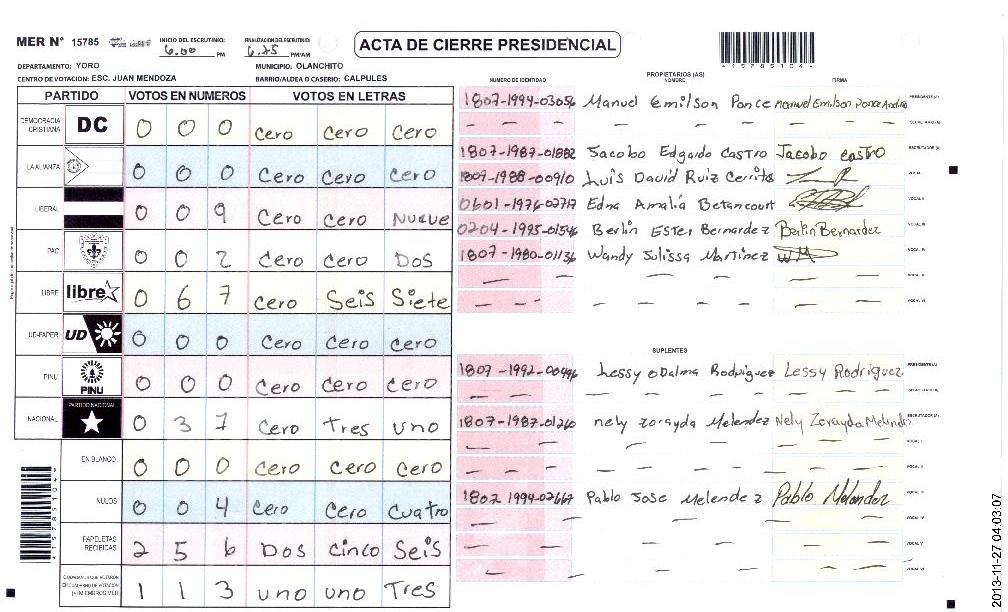 MER Nº 15785 INICIO DEL ESCRUTINIO: 6.00 PM FINALIZACION DEL ESCRUTINIO: 6.25 PM/AM
ACTA DE CIERRE PRESIDENCIAL
4157851044
DEPARTAMENTO: YORO MUNICIPIO: OLANCHITO
CENTRO DE VOTACION: ESC. JUAN MENDOZA BARRIO/ALDEA O CASERIO: CALPULES
PARTIDO VOTOS EN NUMEROS VOTOS EN LETRAS
DEMOCRACIA CRISTIANA DC 0 0 0 Cero Cero Cero
LA ALIANZA 0 0 0 Cero Cero Cero
LIBERAL 0 0 9 Cero Cero Nueve
PAC 0 0 2 Cero Cero Dos
LIBRE libre 0 6 7 Cero Seis Siete
UD-FAPER UD 0 0 0 Cero Cero Cero
PINU PINU 0 0 0 Cero Cero Cero
NACIONAL PARTIDO NACIONAL 0 3 1 Cero Tres uno
EN BLANCO 0 0 0 Cero Cero Cero
NULOS 0 0 4 Cero Cero Cuatro
PAPELETAS RECIBICAS 2 5 6 Dos Cinco Seis
1 1 3 uno uno Tres
PROPIETARIOS (AS)
NUMERO DE IDENTIDAD NOMBRE FIRMA
1807-1994-03056 Manuel Emilson Ponce Manuel Emilson Ponce PRESIDENTE (A)
— — — — — — — SECRETARIO (A)
1807-1987-01882 Jacobo Edgardo Castro Jacobo Castro ESCRUTADOR (A)
1807-1988-00910 Luis David Ruiz Cerrito VOCAL I
0601-1976-02717 Edna Amalia Betancourt VOCAL II
0204-1995-01546 Berlin Ester Bernardez Berlin Bernardez VOCAL III
1807-1980-01136 Wandy Julissa Martinez VOCAL IV
— — — — — VOCAL V
— — — — — — VOCAL VI
SUPLENTES
1807-1992-00496 Lessy Dalma Rodriguez Lessy Rodriguez PRESIDENTE (A)
— — — — — — SECRETARIO (A)
1807-1987-01260 nely zorayda Melendez Nely Zorayda Melendez ESCRUTADOR (A)
— — — — VOCAL I
— — — — — — — VOCAL II
1807 1994-02667 Pablo Jose Melendez Pablo Melendez VOCAL III
— — — — VOCAL IV
— — — — VOCAL V
— — — — — VOCAL VI
2013-11-27 04:03:07